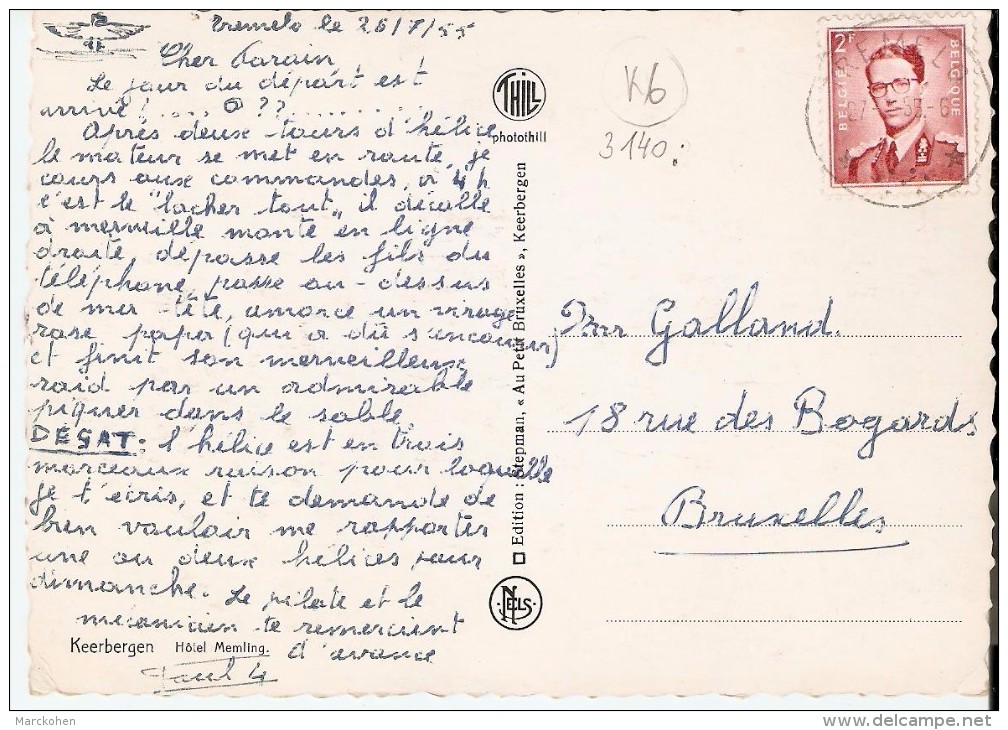 Tremelo le 26/7/55
Cher Parain
Le jour du départ est
arrivé !.... O ??..........
Après deux tours d'hélice
le moteur se met en route, je
cours aux commandes, à 4 h
c'est le "lacher tout„ il décolle
à merveille monte en ligne
droite, dépasse les fils du
téléphone, passe au-dessus
de mer tête, amorce un virage
rase papa (qui a dû s'encourir)
et finit son merveilleux
raid par un admirable
piquer dans le sable
DÉGAT: l'hélice est en trois
morceaux raison pour laquelle
je t'écris, et te demande de
bien vouloir me rapporter
une ou deux hélices pour
dimanche. Le pilote et le
mécanicien te remercient
d'avance
Keerbergen Hôtel Memling.
Paul 4
THILL
photothill
Edition : Stepman, « Au Petit Bruxelles », Keerbergen
NELS
K6
3140.
2F
BELGIE BELGIQUE
Mr Galland.
18 rue des Bogards
Bruxelles
Marckohen
www.delcampe.net